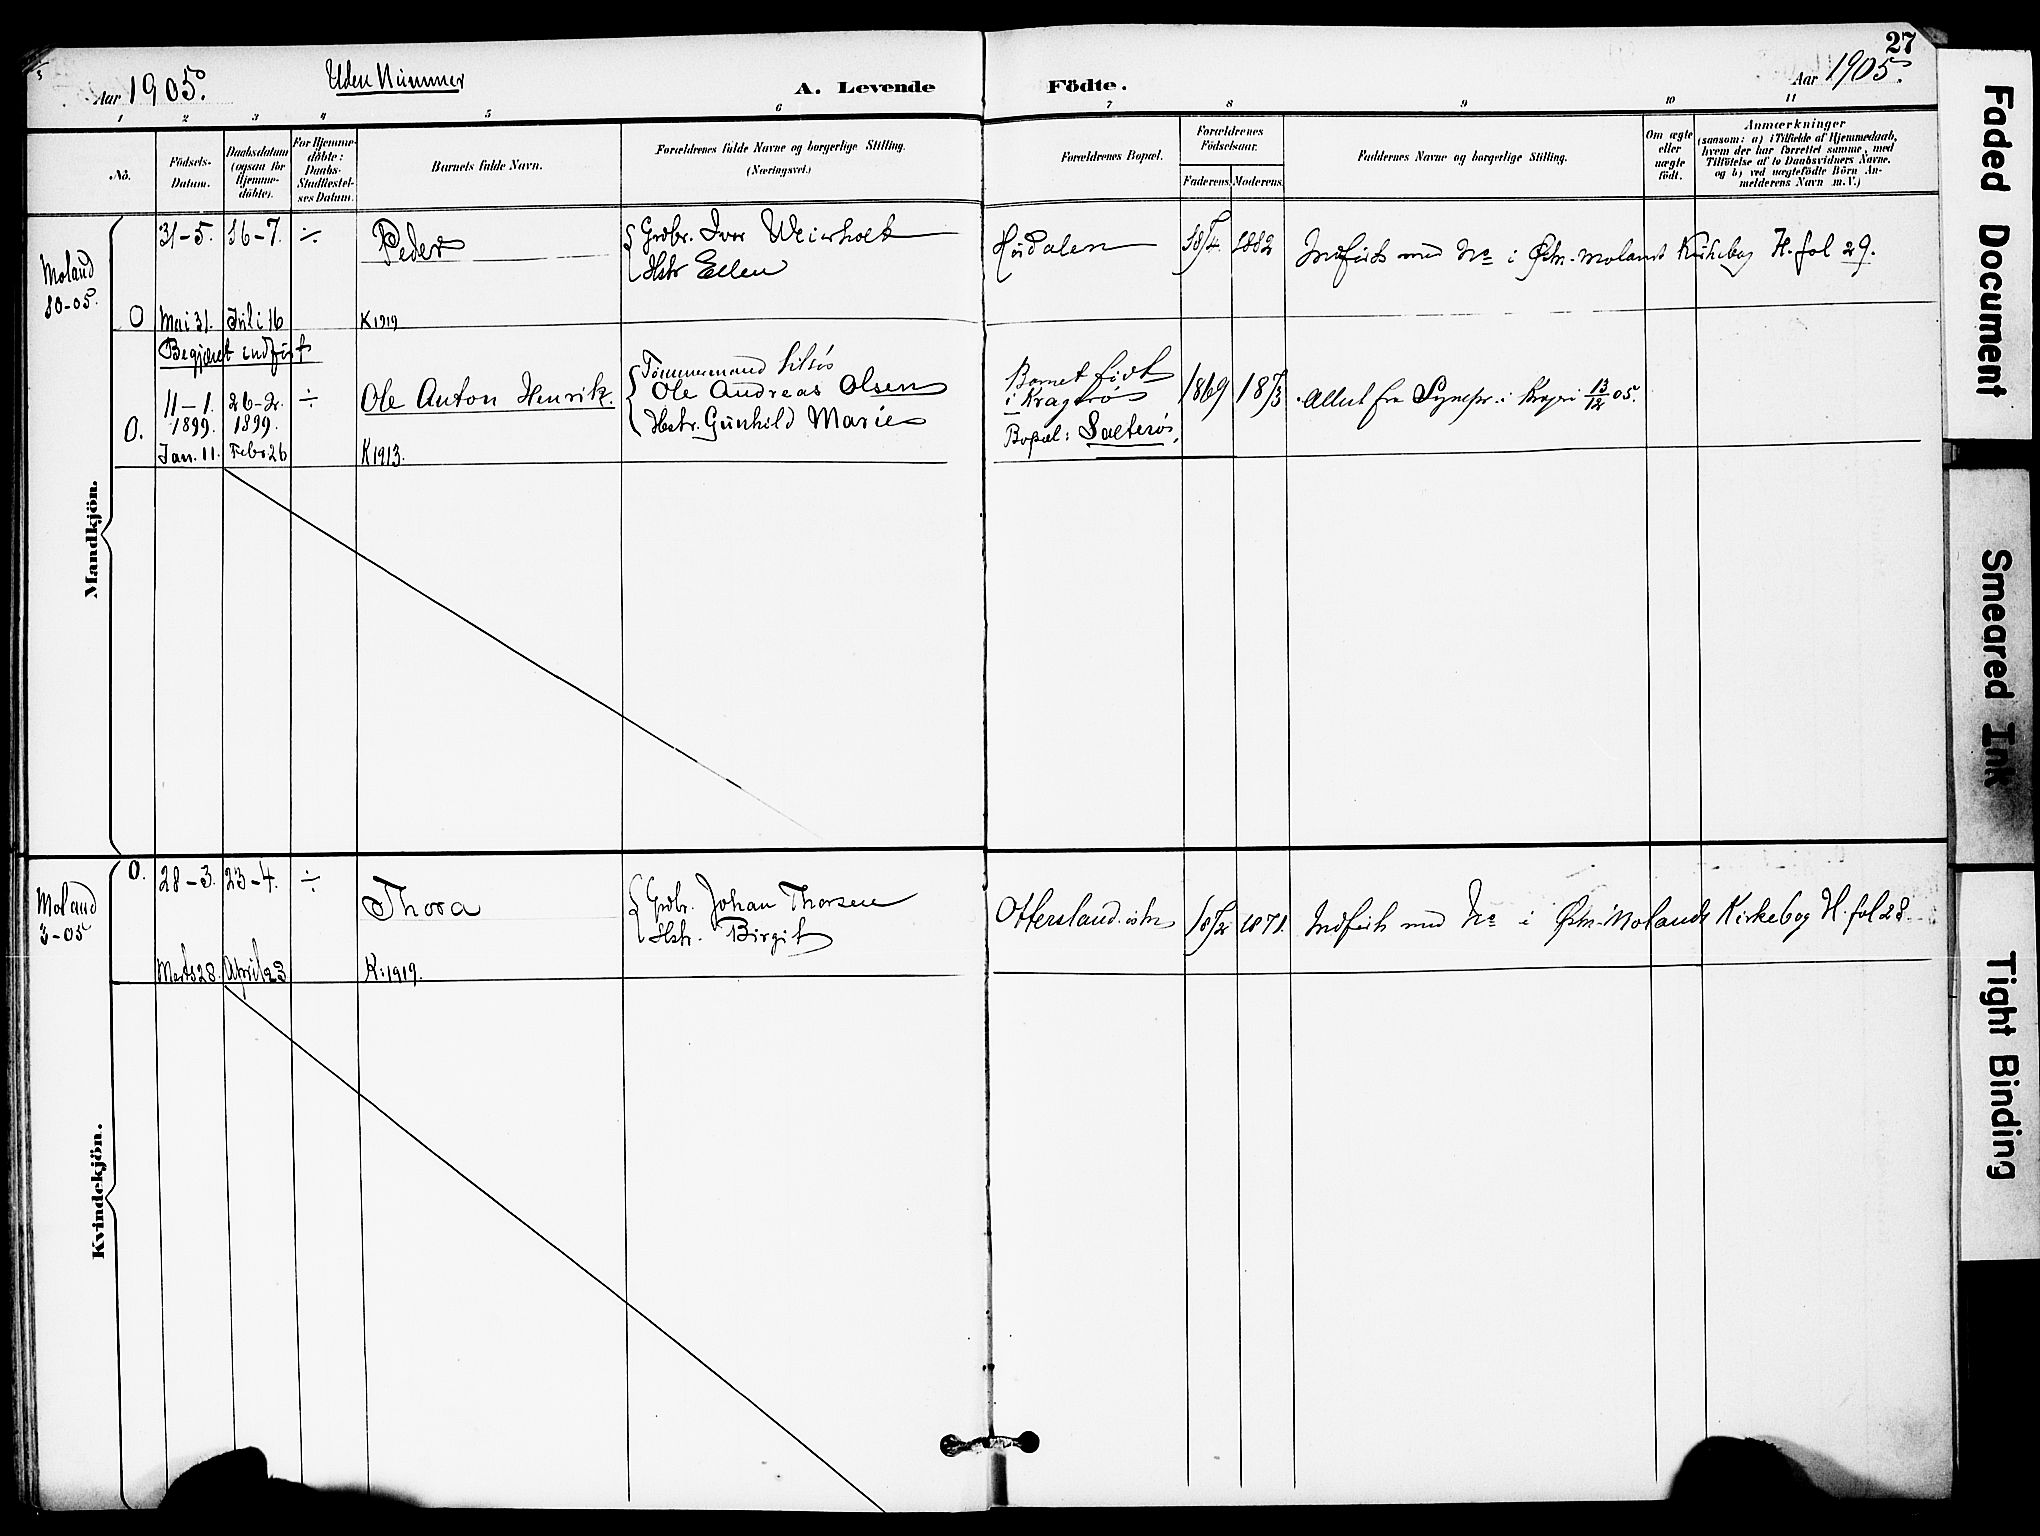 27
Aar 1905.
Uden Nummer
A. Levende
Födte.
Aar 1905.
1 2 3 4 5 6 7 8 9 10 11
No.
Födsels-
Datum.
Daabsdatum
(ogsaa for
Hjemme-
döbte).
For Hjemme-
döbte:
Daabs-
Stadfæstel-
ses Datum.
Barnets fulde Navn.
Forældrenes fulde Navne og borgerlige Stilling.
(Næringsvei.)
Forældrenes Bopæl.
Forældrenes
Födselsaar.
Faderens.
Moderens.
Faddernes Navne og borgerlige Stilling.
Om ægte
eller
uægte
födt.
Anmærkninger
(saasom: a) i Tilfælde af Hjemmedaab,
hvem der har forrettet samme, med
Tilföielse af to Daabsvidners Navne.
og b) ved uægtefödte Börn An-
melderens Navn m. V.)
Mandkjön.
Moland
10-05.
31-5. 16-7. ÷
Peder
Grdbr. Iver Weierholt
Hstr Ellen
Høidalen
1882
Indført med No i Østr. Molands Kirkebog H. fol 29.
O Mai 31. Juli 16
K 1919
Begjæret indført
11-1. 26-2. ÷
1899. 1899.
O.
Ole Anton Henrik.
Tømmermand
Ole Andreas Olsen
Hstr. Gunhild Marie
Barnet født
i Kragerø
Bopæl: Sæterøi.
1869 1873
Attest fra Sognepr. i Kragerø 13/12 05.
Jan. 11. Febr 26
K 1913.
Kvindekjön.
Moland
3-05
O. 28-3. 23-4. ÷
Thora
Grdbr. Johan Thorsen
Hstr. Birgit
Ottersland østre
1871.
Indført med No i Østr. Molands Kirkebog H. fol 28.
Marts 28. April 23
K: 1919.
Faded Document
Smeared Ink
Tight Binding